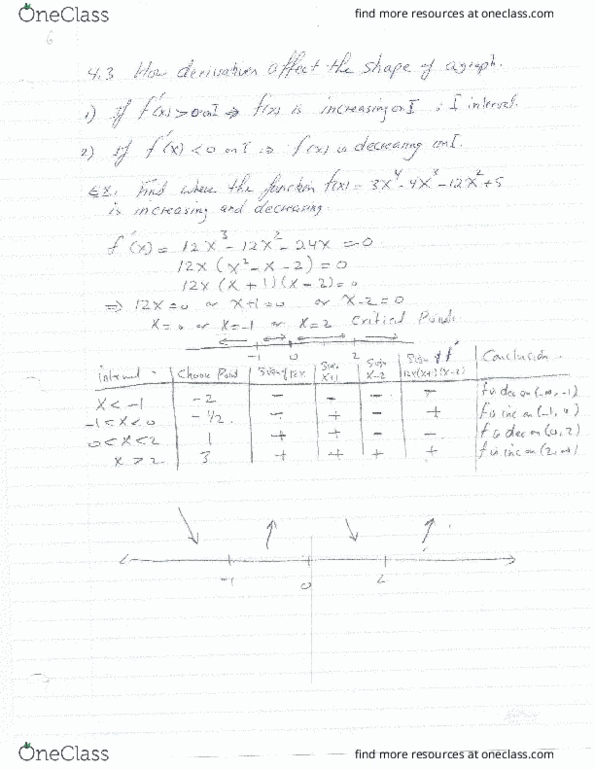 OneClass
find more resources at oneclass.com
6
4.3 How derivatives affect the shape of a graph.
1) if f'(x) > 0 on I ⇒ f(x) is increasing on I ; I interval.
2) if f'(x) < 0 on I ⇒ f(x) is decreasing on I.
EX. Find where the function f(x) = 3x⁴ - 4x³ - 12x² + 5
is increasing and decreasing.
f'(x) = 12x³ - 12x² - 24x = 0
12x (x² - x - 2) = 0
12x (x + 1)(x - 2) = 0
⇒ 12x = 0 or x+1 = 0 or x - 2 = 0
x = 0 or x = -1 or x = 2 Critical Points
-1 0 2
interval Choose Point Sign of 12x Sign x+1 Sign x-2 Sign of f' 12x(x+1)(x-2) Conclusion
x < -1 -2 - - - - f is dec on (-∞, -1)
-1 < x < 0 -1/2 - + - + f is inc on (-1, 0)
0 < x < 2 1 + + - - f is dec on (0, 2)
x > 2 3 + + + + f is inc on (2, ∞)
-1 0 2
OneClass
find more resources at oneclass.com